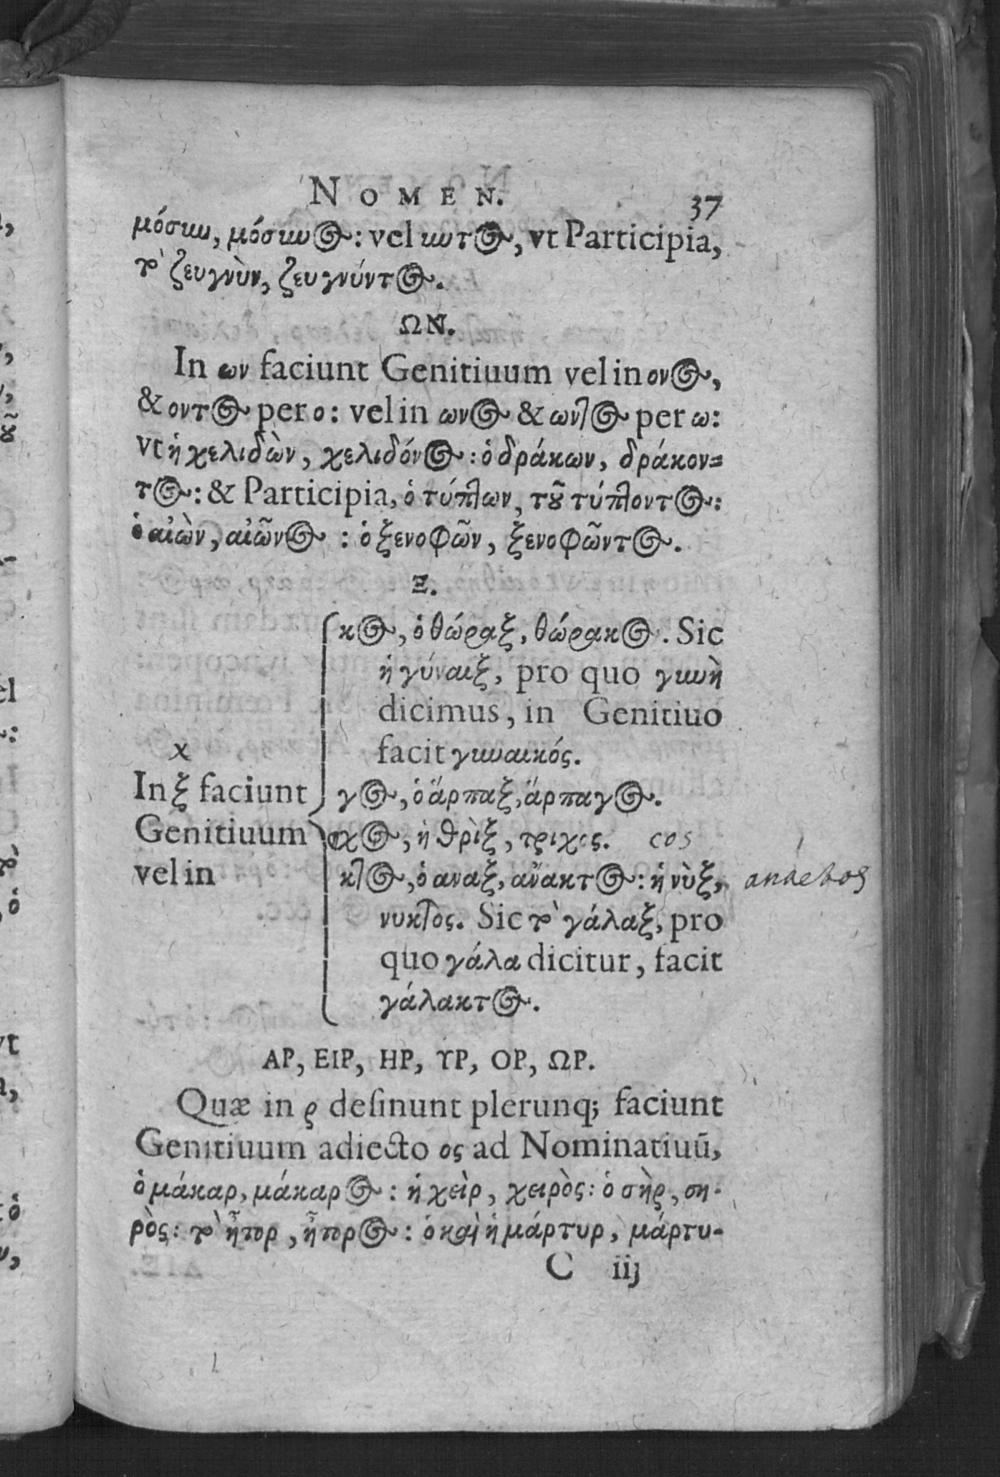 NOMEN. 37
μόσυν, μόσυνος: vel υντος, vt Participia,
τὸ ζευγνὺν, ζευγνύντος.
ΩΝ.
In ων faciunt Genitiuum vel in ονος,
& οντος per ο: vel in ωνος & ωντος per ω:
vt ἡ χελιδὼν, χελιδόνος: ὁ δράκων, δράκον-
τος: & Participia, ὁ τύπτων, τοῦ τύπτοντος:
ὁ αἰὼν, αἰῶνος: ὁ ξενοφῶν, ξενοφῶντος.
Ξ.
κος, ὁ θώραξ, θώρακος. Sic
ἡ γύναιξ, pro quo γυνὴ
dicimus, in Genitiuo
facit γυναικός.
x
In ξ faciunt
Genitiuum
vel in
γος, ὁ ἅρπαξ, ἅρπαγος.
χος, ἡ θρὶξ, τριχος. cos
κτος, ὁ αναξ, ἄνακτος: ἡ νὺξ,
νυκτος. Sic τὸ γάλαξ, pro
quo γάλα dicitur, facit
γάλακτος.
ΑΡ, ΕΙΡ, ΗΡ, ΥΡ, ΟΡ, ΩΡ.
Quæ in ρ desinunt plerunq; faciunt
Genitiuum adiecto ος ad Nominatiuū,
ὁ μάκαρ, μάκαρος: ἡ χεὶρ, χειρὸς: ὁ σὴρ, ση-
ρὸς: τὸ ἦτορ, ἦτορος: ὁ καὶ ἡ μάρτυρ, μάρτυ-
C iij